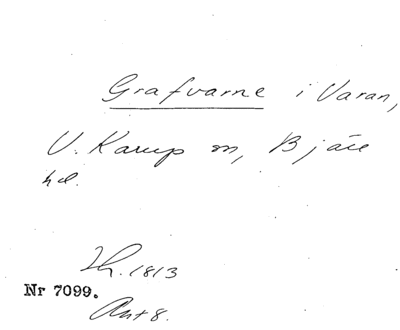 Grafvarne i Varan,
V. Karup sn, Bjäre
hd.
Th. 1813
Nr 7099.
Ant 8.